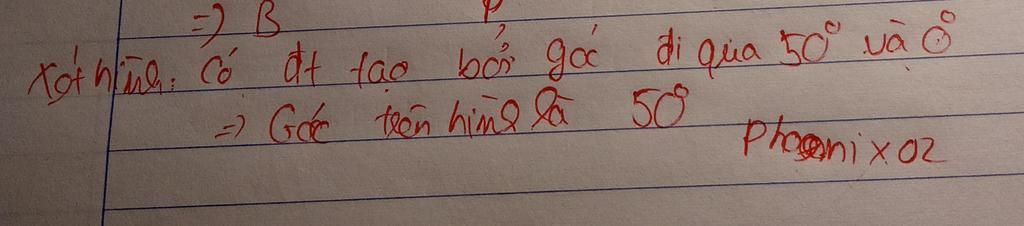 =) B
Xét hình: Có đt tạo bởi góc đi qua 50° và 0°
=) Góc trên hình là 50°
Phoenix02